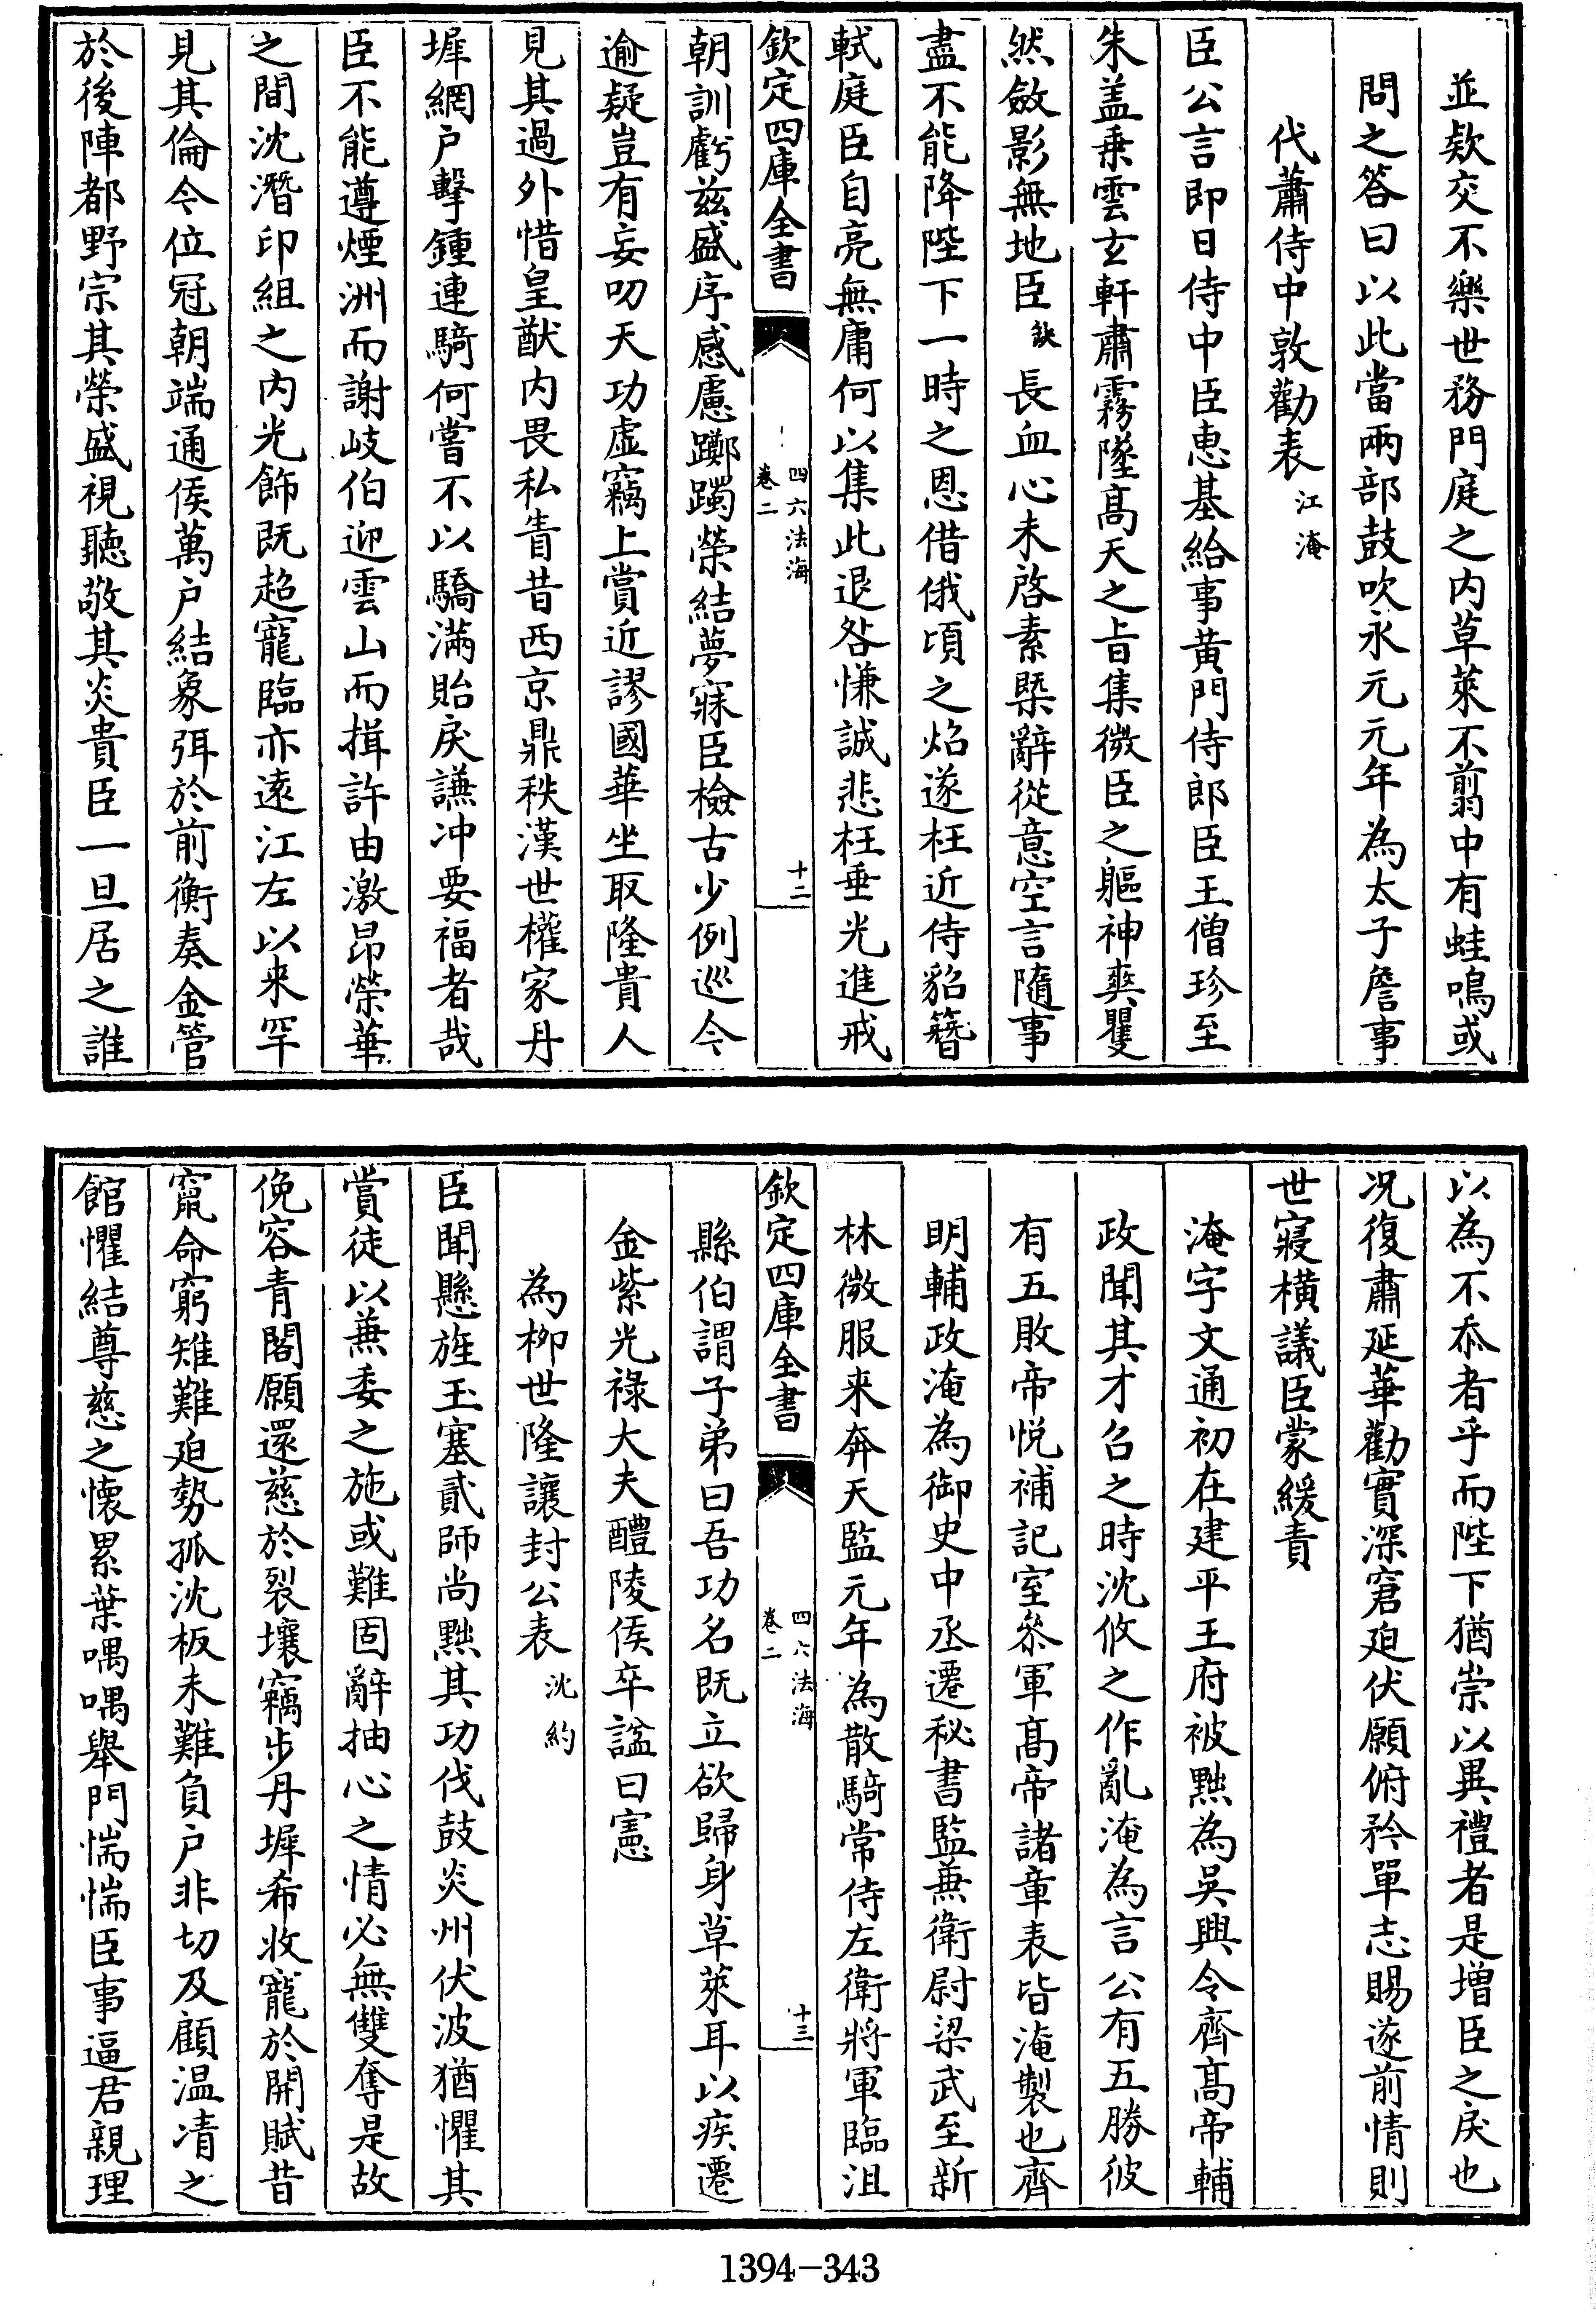 並欵交不樂世務門庭之内草萊不翦中有蛙鳴或
問之答曰以此當兩部鼓吹永元元年為太子詹事
代蕭侍中敦勸表江淹
臣公言即日侍中臣恵基給事黄門侍郎臣王僧珍至
朱盖乗雲玄軒肅霧墜髙天之㫖集微臣之軀神爽瞿
然斂影無地臣缺長血心未啓素槩辭從意空言隨事
盡不能降陛下一時之恩借俄頃之焰遂枉近侍貂簪
軾庭臣自亮無庸何以集此退咎慊誠悲枉垂光進戒
欽定四庫全書
四六法海
卷二
十二
朝訓虧兹盛序感慮躑躅榮結夢寐臣檢古少例巡今
逾疑豈有妄叨天功虚竊上賞近謬國華坐取隆貴人
見其過外惜皇猷内畏私眚昔西京鼎秩漢世權家丹
墀網户擊鍾連騎何嘗不以驕滿貽戾謙冲要福者哉
臣不能遵煙洲而謝岐伯迎雲山而揖許由激昂榮華
之間沈潛印組之内光飾既超寵臨亦遠江左以来罕
見其倫令位冠朝端通侯萬户結象弭於前衡奏金管
於後陣都野宗其榮盛視聽敬其炎貴臣一旦居之誰
以為不忝者乎而陛下猶崇以異禮者是増臣之戾也
况復肅延華勸實深窘廹伏願俯矜單志賜遂前情則
世寢横議臣蒙緩責
淹字文通初在建平王府被黜為吳興令齊髙帝輔
政聞其才召之時沈攸之作亂淹為言公有五勝彼
有五敗帝悦補記室叅軍髙帝諸章表皆淹製也齊
明輔政淹為御史中丞遷秘書監兼衛尉梁武至新
林微服来奔天監元年為散騎常侍左衛將軍臨沮
欽定四庫全書
四六法海
卷二
十三
縣伯謂子弟曰吾功名既立欲歸身草萊耳以疾遷
金紫光禄大夫醴陵侯卒諡曰憲
為柳世隆讓封公表沈約
臣聞懸旌玉塞貳師尚黜其功伐鼓炎州伏波猶懼其
賞徒以兼委之施或難固辭抽心之情必無雙奪是故
俛容青閣願還慈於裂壤竊歩丹墀希收寵於開賦昔
竄命窮雉難廹勢孤沈板未難負户非切及顧温凊之
館懼結尊慈之懐累葉喁喁舉門惴惴臣事逼君親理
1394-343